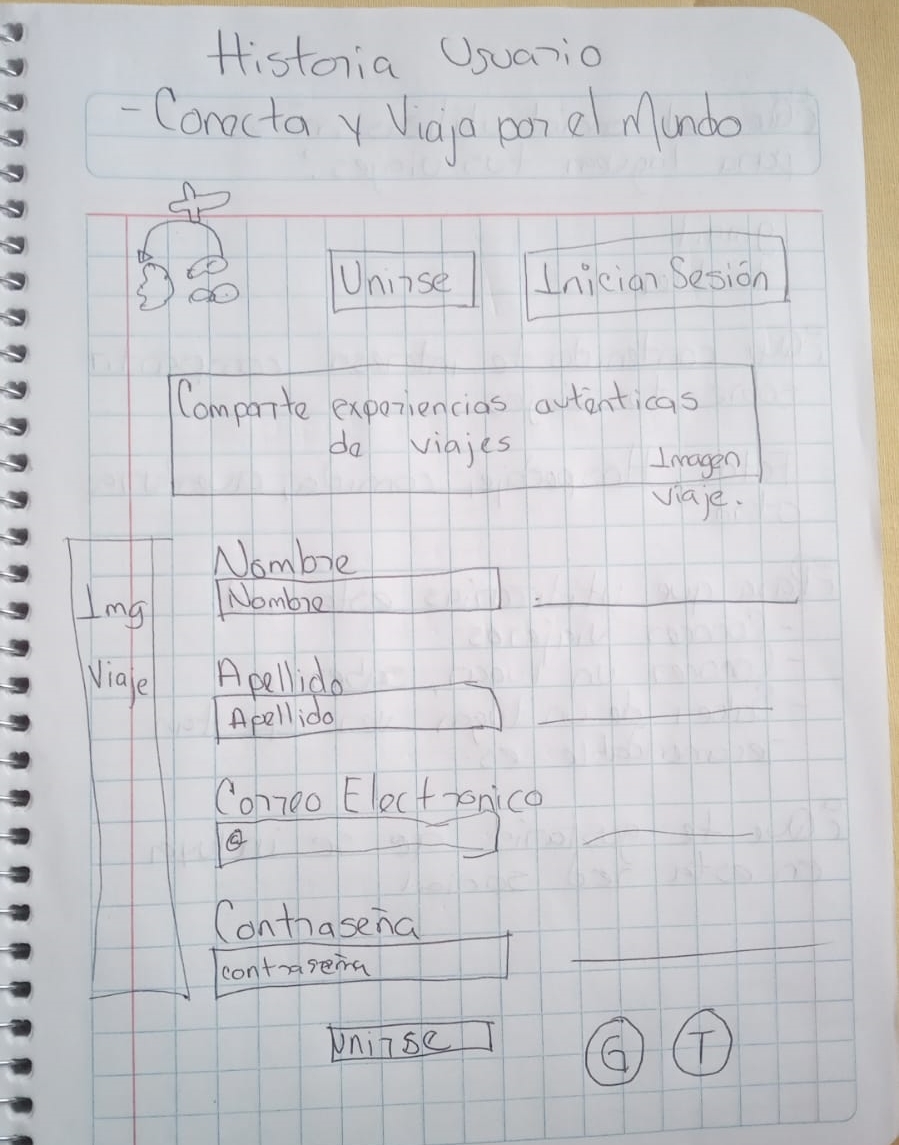 Historia Usuario
- Conecta y Viaja por el Mundo
Unirse
Iniciar Sesión
Comparte experiencias auténticas
de viajes
Imagen
viaje.
Img
Viaje
Nombre
Nombre
Apellido
Apellido
Correo Electronico
@
Contraseña
contraseña
Unirse
G
T